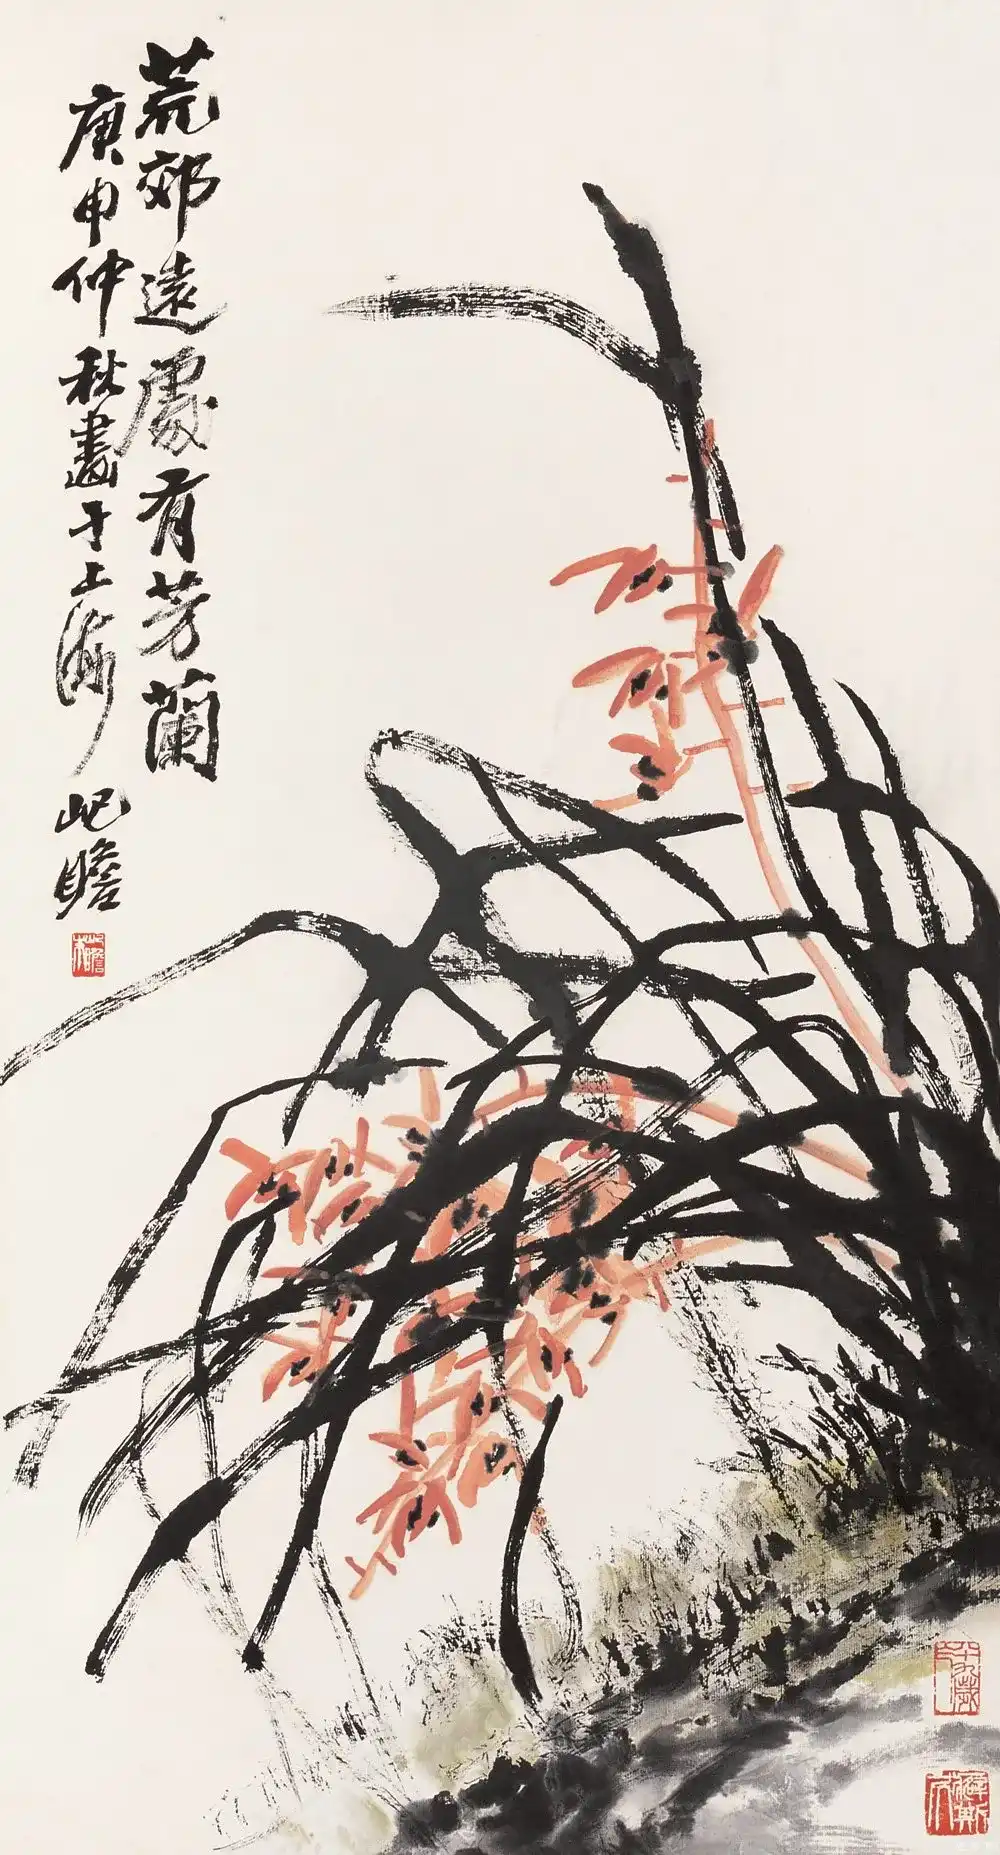 荒郊遠處有芳蘭
庚申仲秋畫于上海
屺瞻